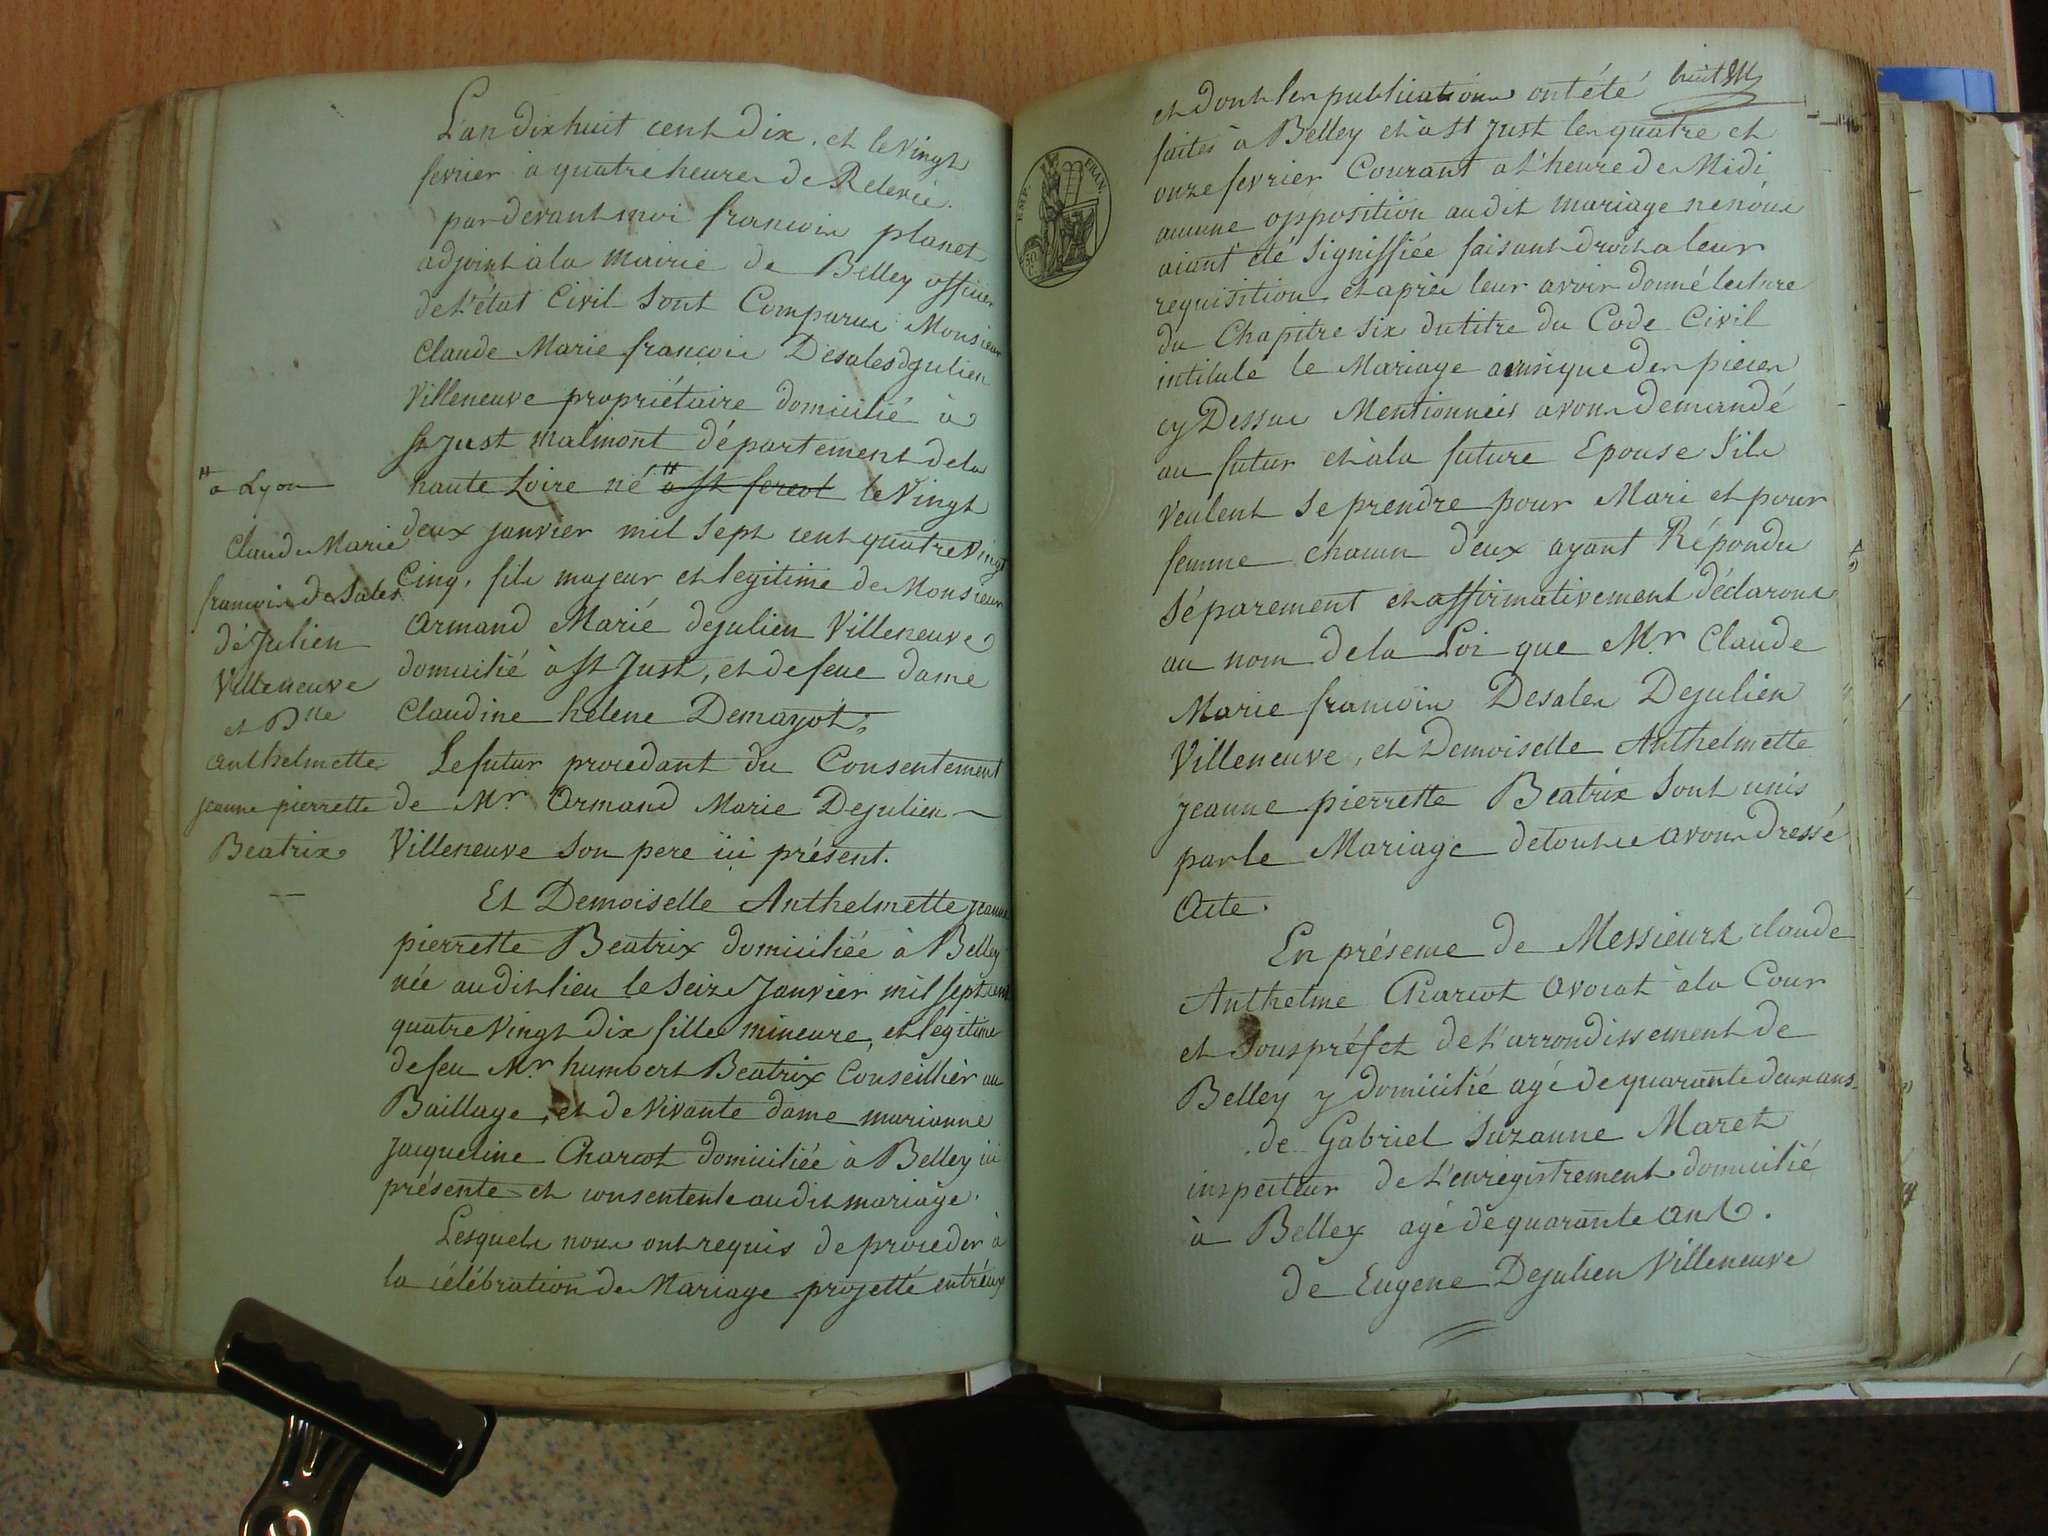 L'an dix huit cent dix, et le vingt
fevrier à quatre heures de Relevée.
pardevant moi francois planet
adjoint à la Mairie de Belley officier
de l'état Civil sont Comparus Monsieur
Claude Marie francois Desales Dejulien
Villeneuve propriétaire domicilié à
St Just malmont département de la
haute Loire né " a St fereol le vingt
" a Lyon
deux janvier mil sept cent quatre vingt
Cinq, fils majeur et legitime de Monsieur
Armand Marié dejulien Villeneuve
domicilié à St Just, et de feue dame
Claudine helene Demayot;
Claude Marie
francois de Sales
dé Julien
Villeneuve
et Dlle
anthelmette
jeanne pierrette
Beatrix
Le futur procedant du Consentement
de Mr Armand Marie Dejulien
Villeneuve son pere ici présent.
Et Demoiselle Anthelmette jeanne
pierrette Beatrix domiciliée à Belley
née audit lieu le seize Janvier mil sept cent
quatre vingt dix fille mineure, et legitime
de feu Mr humbert Beatrix Conseillier au
Baillage, et de vivante dame marianne
jacqueline Charcot domiciliée à Belley ici
présente et consentente audit mariage.
Lesquels nous ont requis de proceder à
la célébration de Mariage projetté entréux
huit
et dont les publications ont été
faites à Belley et à St Just les quatre et
onze fevrier Courant a l'heure de Midi
aucune opposition audit mariage ne nous
aiant été signiffiée faisant droit a leur
requisition et après leur avoir donné lecture
du Chapitre six du titre du Code Civil
intitulé le Mariage ainsi que des pieces
cy Dessus Mentionnées avons demandé
au futur et à la future Epouse s'ils
veulent se prendre pour Mari et pour
femme chacun d'eux ayant Répondu
séparement et affirmativement déclarons
au nom de la Loi que Mr Claude
Marie francois Desales Dejulien
Villeneuve, et Demoiselle Anthelmette
jeanne pierrette Beatrix sont unis
par le Mariage de tout ce avons dressé
Acte.
En présence de Messieurs Claude
Anthelme Charcot avocat à la Cour
et Souspréfet de l'arrondissement de
Belley y domicilié agé de quarante deux ans
de Gabriel Suzanne Maret
inspecteur de l'enregistrement domicilié
à Belley agé de quarante ans.
de Eugene Dejulien Villeneuve
EMP. FRAN.
50